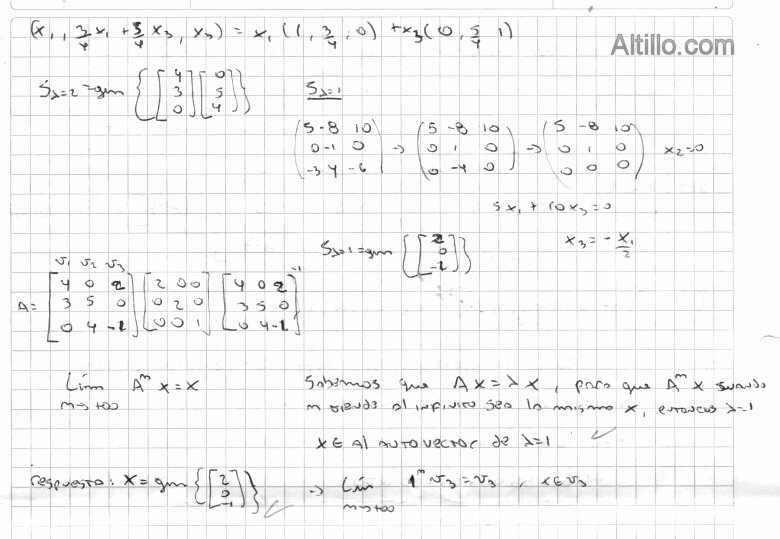 (x₁, 3/4 x₁ + 5/4 x₃, x₃) = x₁ (1, 3/4, 0) + x₃ (0, 5/4 1)
Altillo.com
Sλ=2 = gen { [4 3 0] [0 5 4] }
Sλ=1
(5 -8 10
0 -1 0
-3 4 -6) → (5 -8 10
0 1 0
0 -4 0) → (5 -8 10
0 1 0
0 0 0) x₂=0
5x₁ + 10x₃ = 0
x₃ = - x₁/2
Sλ=1 = gen { [2 0 -1] }
v₁ v₂ v₃
A = [4 0 2
3 5 0
0 4 -1] [2 0 0
0 2 0
0 0 1] [4 0 2
3 5 0
0 4 -1]⁻¹
Lím Aᵐ x = x
m→+∞
Sabemos que Ax = λx, para que Aᵐx cuando
m tienda al infinito sea lo mismo x, entonces λ=1
x ∈ Al autovector de λ=1
respuesta: x = gen { [2 0 -1] } → Lím 1ᵐ v₃ = v₃, x ∈ v₃
m→+∞